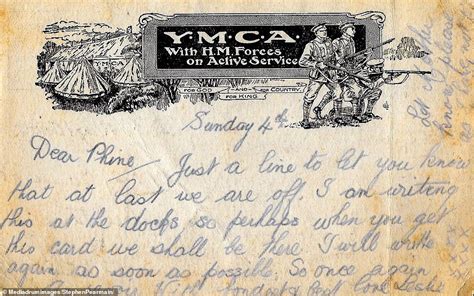 Y.M.C.A.
With H.M. Forces
on Active Service
YMCA
FOR GOD AND FOR COUNTRY
FOR KING
Sunday 4th
Dear Phine/ Just a line to let you know
that at last we are off. I am writing
this at the docks, so perhaps when you get
this card we shall be there. I will write
again as soon as possible. So once again
with fondest love Leslie
Let Mother
know please
© Mediadrumimages StephenPearmain